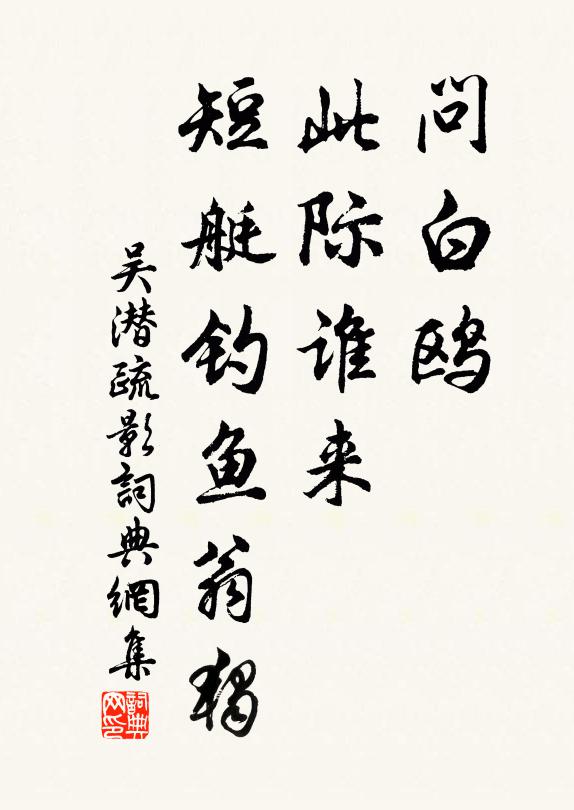 问白鸥
此际谁来
短艇钓鱼翁独
吴潜疏影詞典網集
詞典
网印